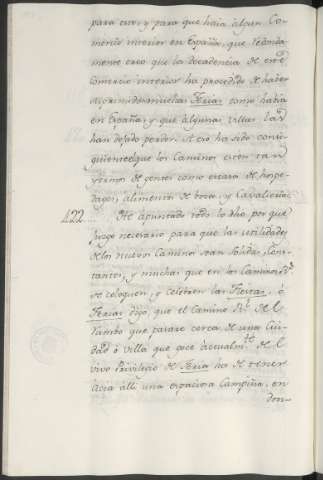 para esso, y para que haia algun Co-
mercio interior en España, que redonda-
mente creo que la decadencia de este
Comercio interior ha procedido de haver
suprimidos muchas Ferias como havia
en España, y que algunas villas las
han dejado perder. A esto ha sido consi-
guiente el que los Caminos esten tan
yermos de gentes como escasa de hospe-
dages, alimentos de boca, y Cavallerias.
422. He apuntado todo lo dho, por que
juzgo necesario para que las utilidades
de los nuevos Caminos sean solidas, Cons-
tantes, y muchas que en los Caminos Rs.
se coloquen, y celebren las Fiestas, ó
Ferias digo, que el Camino Rl. de el
tanto que pasare cerca de una Ciu-
dad ó villa que goce actualmte. de el
vivo Privilegio de Feria ha de tener
acia alli una espaciosa Campiña, en
don-